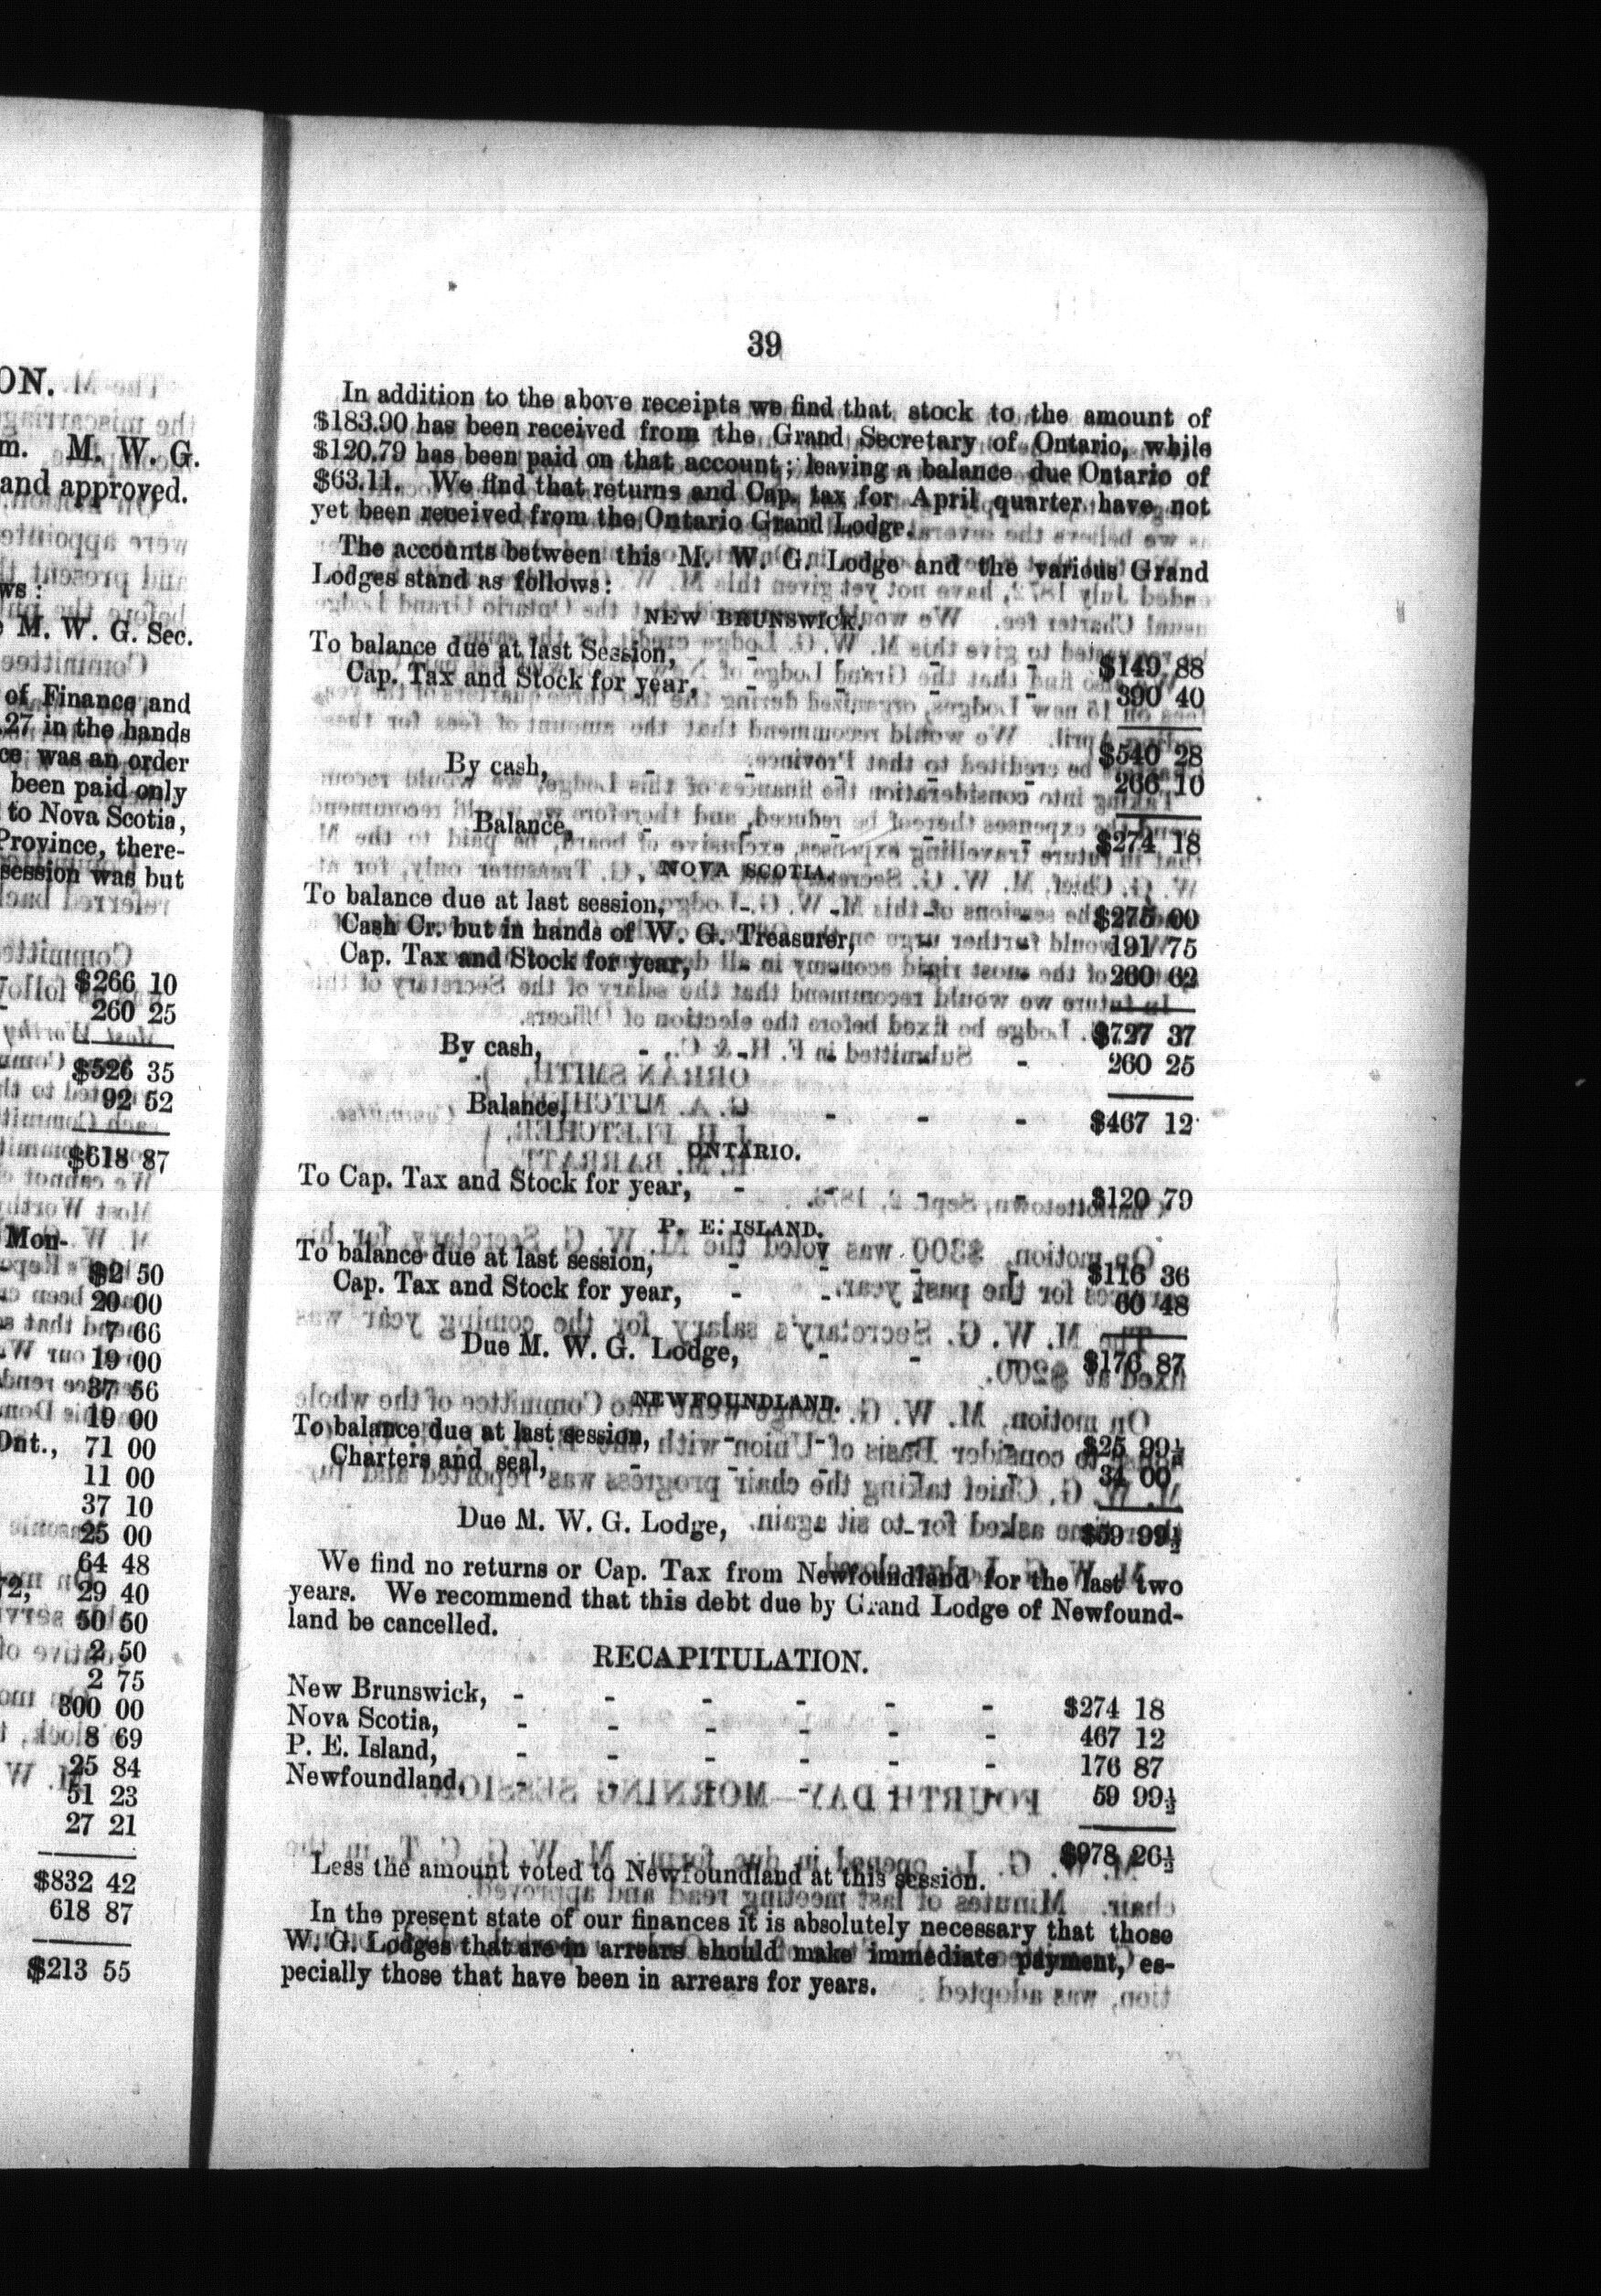 ON.
m. M. W. G.
and approved.
ws :
M. W. G. Sec.
of Finance and
.27 in the hands
ce was an order
been paid only
to Nova Scotia,
Province, there-
session was but
$266 10
260 25
$526 35
92 52
$618 87
Mon-
$2 50
20 00
7 66
19 00
37 56
19 00
Ont., 71 00
11 00
37 10
25 00
64 48
72, 29 40
50 50
2 50
2 75
300 00
8 69
25 84
51 23
27 21
$832 42
618 87
$213 55
39
In addition to the above receipts we find that stock to the amount of
$183.90 has been received from the Grand Secretary of Ontario, while
$120.79 has been paid on that account; leaving a balance due Ontario of
$63.11. We find that returns and Cap. tax for April quarter have not
yet been received from the Ontario Grand Lodge.
The accounts between this M. W. G. Lodge and the various Grand
Lodges stand as follows:
NEW BRUNSWICK.
To balance due at last Session, - - - - $149 88
Cap. Tax and Stock for year, - - - - 390 40
$540 28
By cash, - - - - - 266 10
Balance, - - - - - $274 18
NOVA SCOTIA.
To balance due at last session, - - - - $275 00
Cash Cr. but in hands of W. G. Treasurer, - - 191 75
Cap. Tax and Stock for year, - - - - 260 62
$727 37
By cash, - - - - - 260 25
Balance, - - - - - $467 12
ONTARIO.
To Cap. Tax and Stock for year, - - - - $120 79
P. E. ISLAND.
To balance due at last session, - - - - $116 36
Cap. Tax and Stock for year, - - - - 60 48
Due M. W. G. Lodge, - - - $176 87
NEWFOUNDLAND.
To balance due at last session, - - - - $25 99½
Charters and seal, - - - - - 34 00
Due M. W. G. Lodge, - - - $59 99½
We find no returns or Cap. Tax from Newfoundland for the last two
years. We recommend that this debt due by Grand Lodge of Newfound-
land be cancelled.
RECAPITULATION.
New Brunswick, - - - - - - $274 18
Nova Scotia, - - - - - - 467 12
P. E. Island, - - - - - - 176 87
Newfoundland, - - - - - 59 99½
$978 26½
Less the amount voted to Newfoundland at this session.
In the present state of our finances it is absolutely necessary that those
W. G. Lodges that are in arrears should make immediate payment, es-
pecially those that have been in arrears for years.